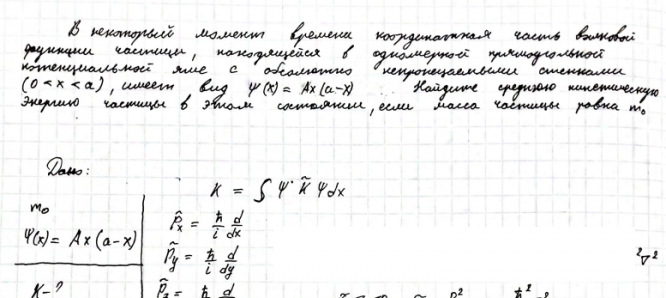 В некоторый момент времени координатная часть волновой
функции частицы, находящейся в одномерной прямоугольной
потенциальной яме с абсолютно непроницаемыми стенками
(0<x<a), имеет вид Ψ(x) = Ax(a-x) Найдите среднюю кинетическую
энергию частицы в этом состоянии, если масса частицы равна m₀
Дано:
m₀
Ψ(x) = Ax(a-x)
K-?
K = ∫ Ψ* K̂ Ψ dx
P̂x = ħ/i d/dx
P̂y = ħ/i d/dy
P̂z = ħ d
²∇²
P² ħ²